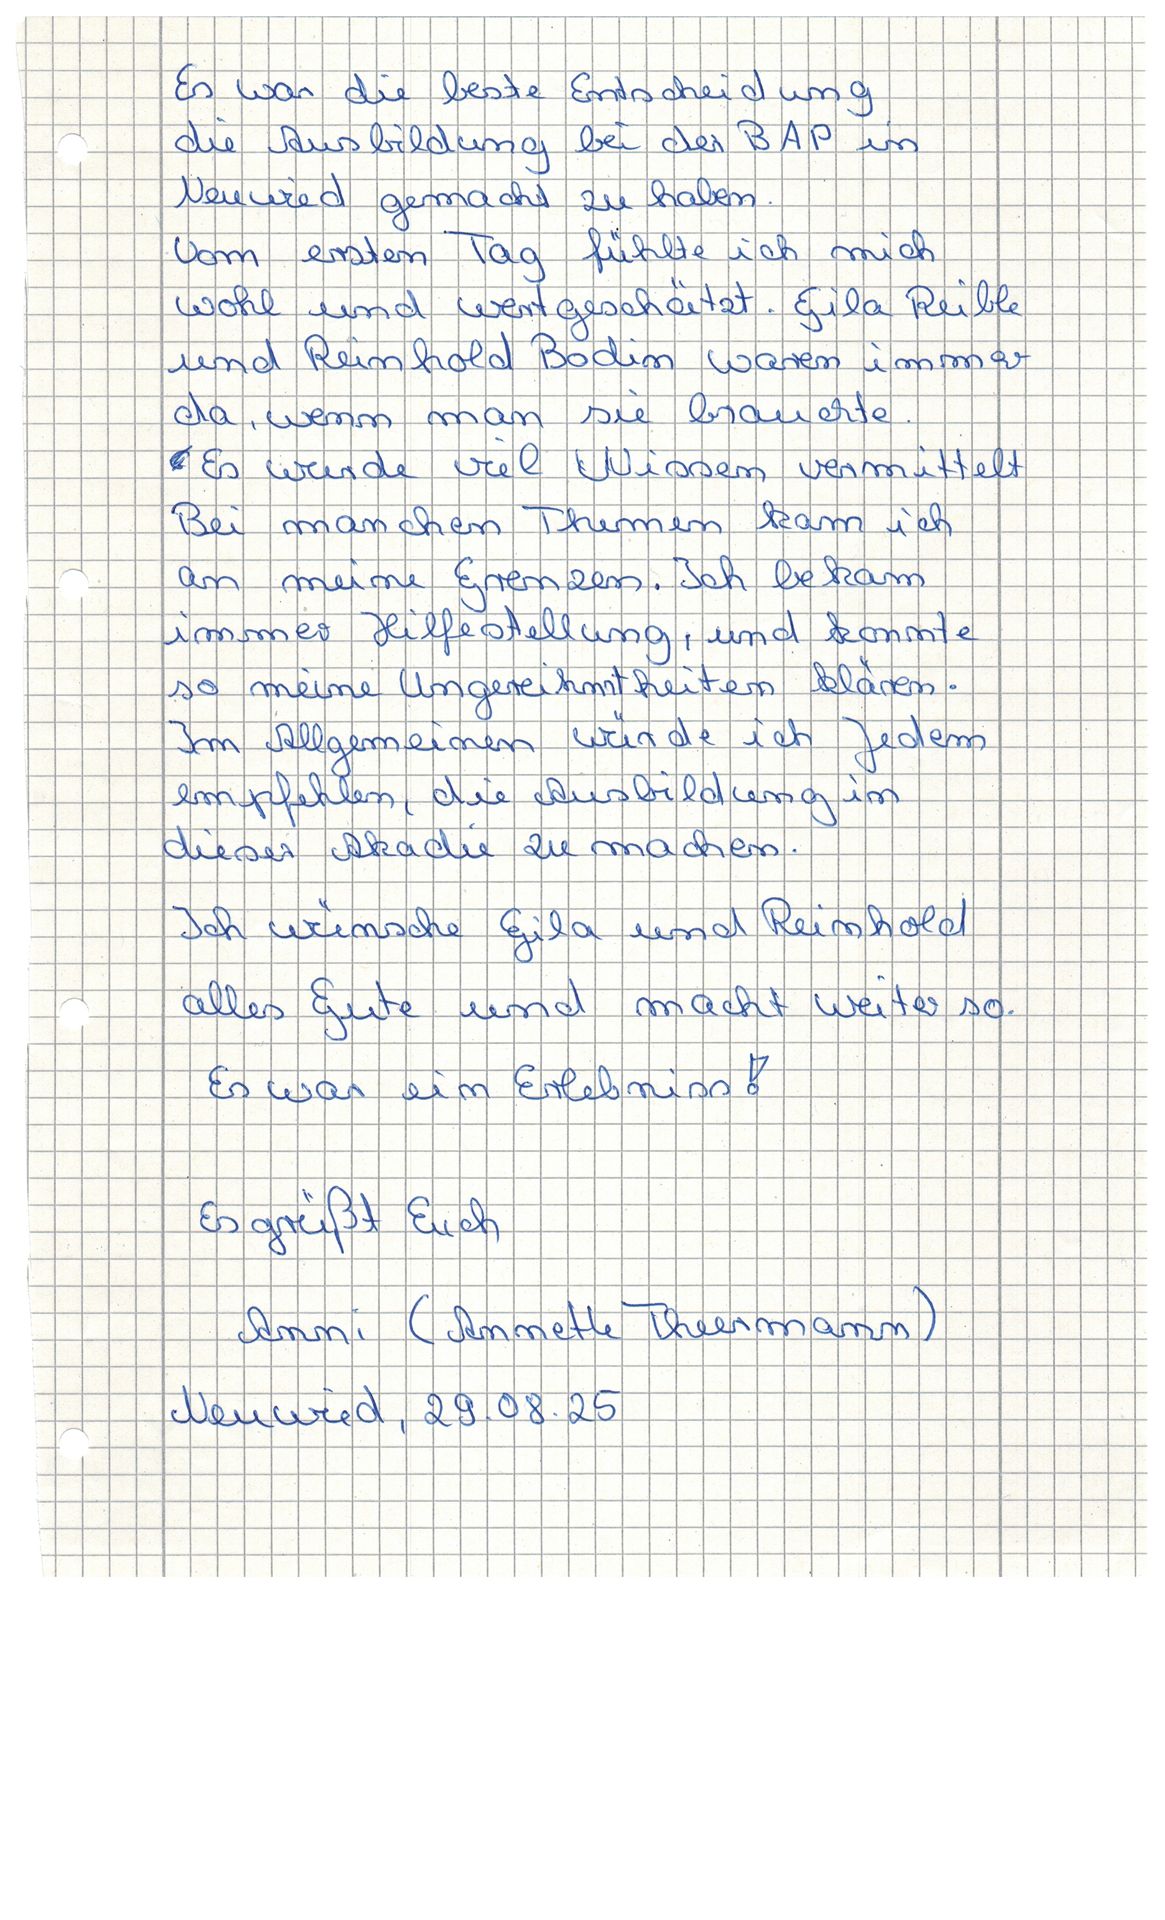 Es war die beste Entscheidung
die Ausbildung bei der BAP in
Neuwied gemacht zu haben.
Vom ersten Tag fühlte ich mich
wohl und wertgeschätzt. Gila Reible
und Reinhold Bodin waren immer
da, wenn man sie brauchte.
Es wurde viel Wissen vermittelt
Bei manchen Themen kam ich
an meine Grenzen. Ich bekam
immer Hilfestellung, und konnte
so meine Ungereihmtheiten klären.
Im Allgemeinen würde ich Jedem
empfehlen, die Ausbildung in
dieser Akadie zu machen.
Ich wünsche Gila und Reinhold
alles Gute und macht weiter so.
Es war ein Erlebniss!
Es grüßt Euch
Anni (Annette Theermann)
Neuwied, 29.08.25